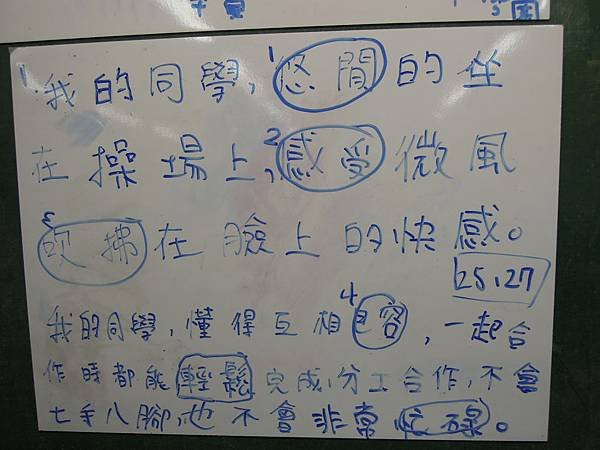 員
園
1. 我的同學,1悠閒的坐
在操場上,2感受微風
3吹拂在臉上的快感。
25、27
我的同學,懂得互相4包容,一起合
作時都能輕鬆完成,分工合作,不會
七手八腳,也不會非常忙碌。